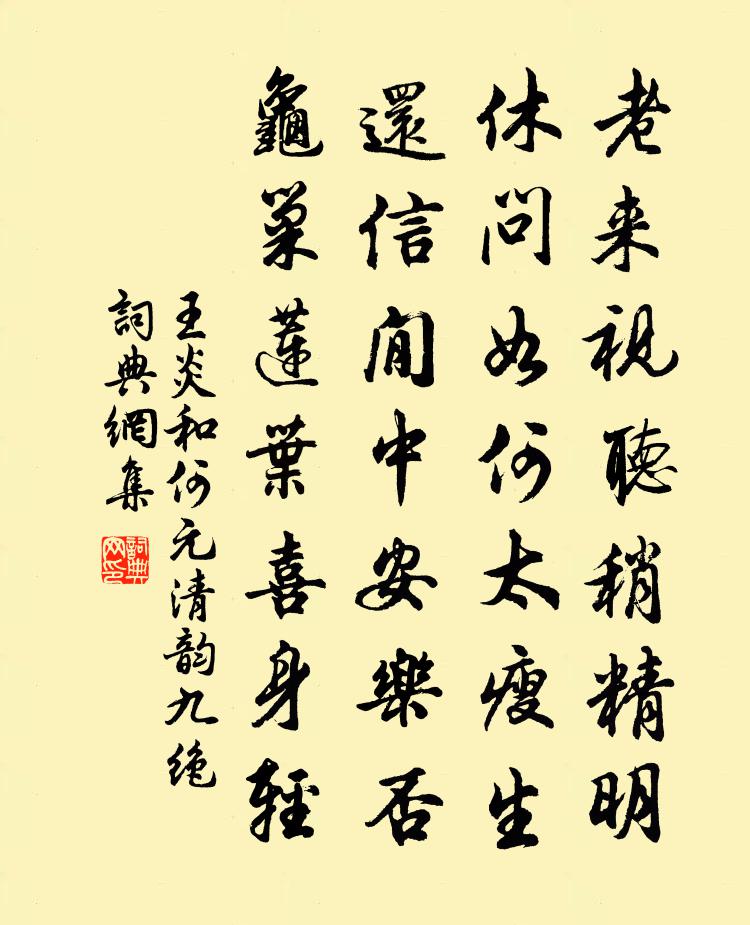 老来視聴稍精明
休問如何太瘦生
還信閒中安樂否
龜巢蓮葉喜身輕
王炎和何元清韵九绝
詞典網集
詞典網印